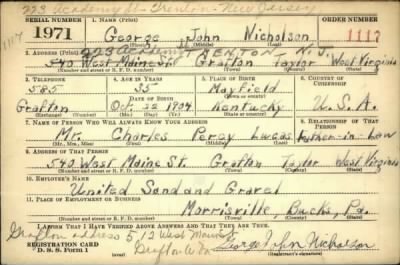 223 Academy St - Trenton - New Jersey
SERIAL NUMBER 1. NAME (Print) ORDER NUMBER
1117 1971 George John Nicholson 1117
(First) (Middle) (Last)
223 Academy TRENTON N.J.
2. ADDRESS (Print)
540 West Maine St. Grafton Taylor West Virginia
(Number and street or R. F. D. number) (Town) (County) (State)
3. TELEPHONE 4. AGE IN YEARS 5. PLACE OF BIRTH 6. COUNTRY OF CITIZENSHIP
585 35 Mayfield
DATE OF BIRTH (Town or county)
Grafton Oct. 1904 Kentucky U.S.A.
(Exchange) (Number) (Mo.) (Day) (Yr.) (State or country)
7. NAME OF PERSON WHO WILL ALWAYS KNOW YOUR ADDRESS 8. RELATIONSHIP OF THAT PERSON
Mr. Charles Percy Lucas Father-in-Law
(Mr., Mrs., Miss) (First) (Middle) (Last)
9. ADDRESS OF THAT PERSON
540 West Maine St. Grafton Taylor West Virginia
(Number and street or R. F. D. number) (Town) (County) (State)
10. EMPLOYER'S NAME
United Sand and Gravel
11. PLACE OF EMPLOYMENT OR BUSINESS
Morrisville, Bucks, Pa.
(Number and street or R. F. D. number) (Town) (County) (State)
I AFFIRM THAT I HAVE VERIFIED ABOVE ANSWERS AND THAT THEY ARE TRUE.
Grafton address 512 West Main St
REGISTRATION CARD Grafton W. Va. George John Nicholson
D. S. S. Form 1 (Registrant's signature)